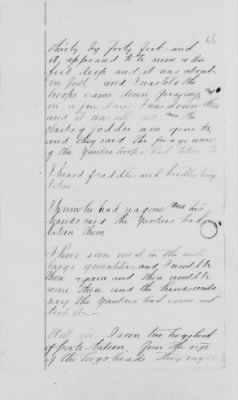 thirty by forty feet and
it appeared to be nine or ten
feet deep and it was about
full and I
troops came down foraging
in a few days I was down there
and it was all out and the
stacks of fodder were gone too
and they said the forage wagons
of the Yankee troops had taken it
I heard of saddles and bridles being
taken.
I know he had wagons and his
hands said the Yankees had
taken them
I have seen meat in the
large quantities and I would be
there again and there would be
none there and the hands would
say the Yankees had come and
took it
I seen two hogshead
of pork taken. from the size
of the hogsheads they might